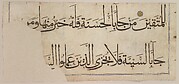 للمتقين من جا بالحسنة فله خير منها ومن
جا بالسيئة فلا يجزى الذين عملوا ال